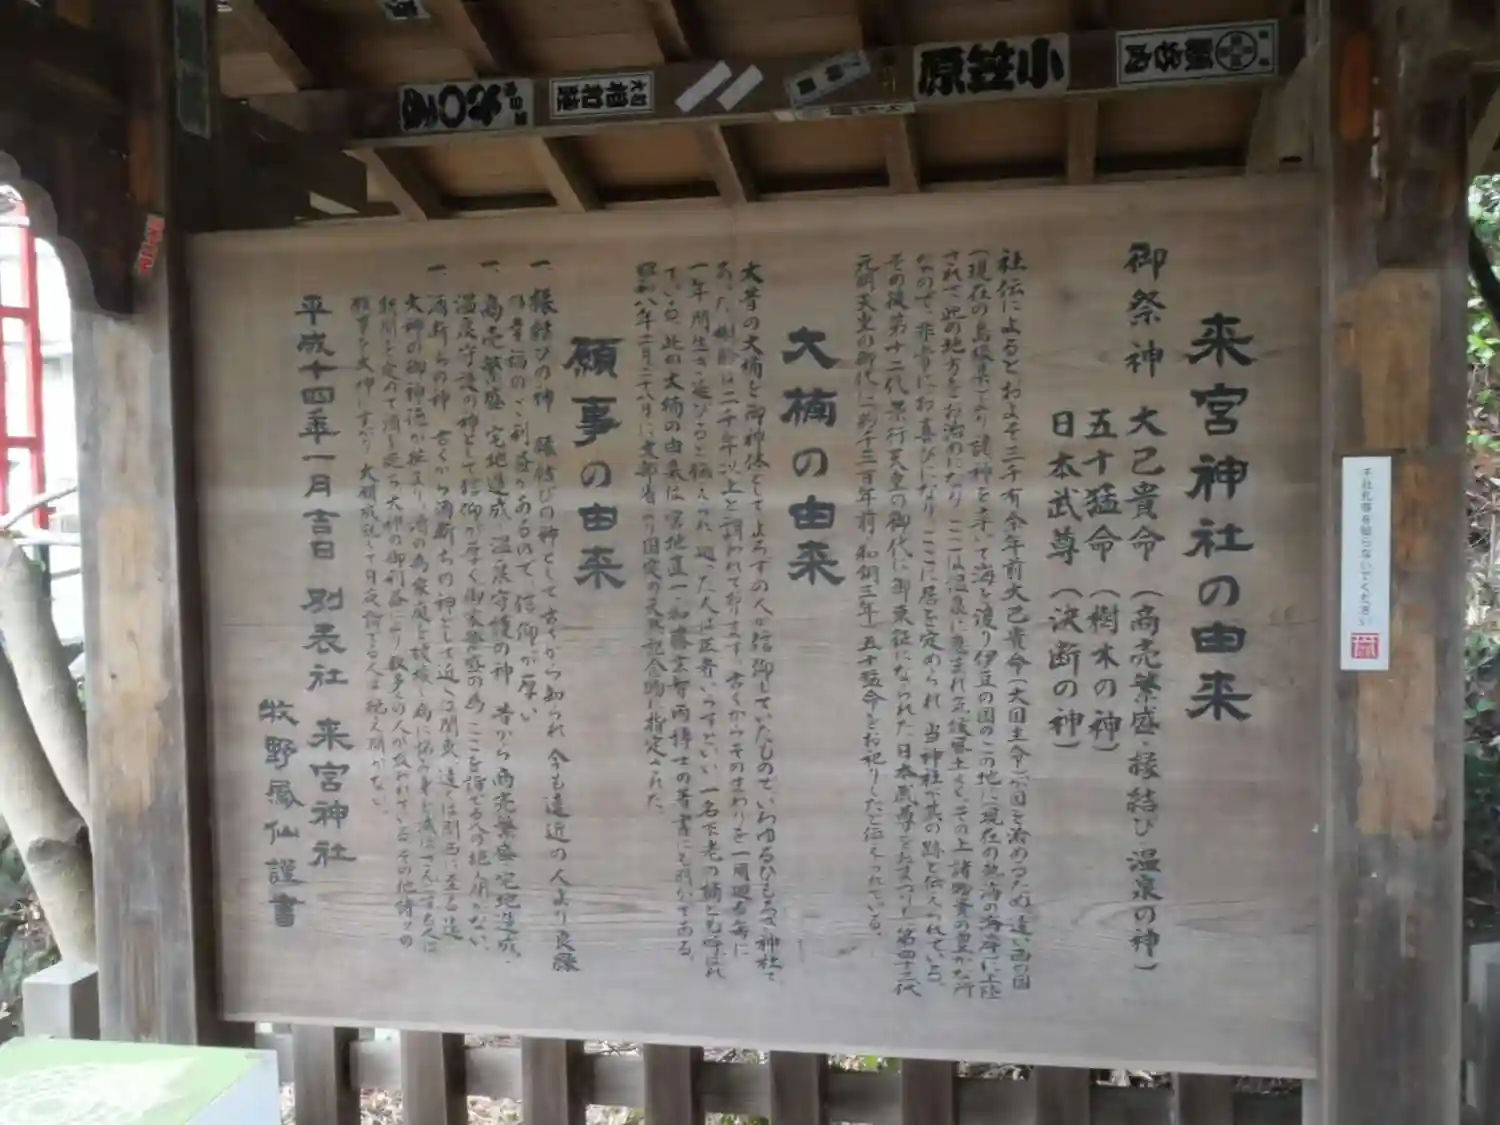 来宮神社の由来
御祭神 大己貴命(商売繁盛・縁結び・温泉の神)
五十猛命(樹木の神)
日本武尊(決断の神)
社伝によるとおよそ三千有余年前大己貴命(大国主命)が国を治めるため、遠い西の国
(現在の島根県)より諸神を率いて海を渡り伊豆の国のこの地に(現在の熱海の海岸)に上陸
されて此の地方をお治めになり、ここは温泉に恵まれ気候風土よく、その上諸野菜の豊かな所
なので、非常にお喜びになり、ここに居を定められ、当神社が其の跡と伝えられている。
その後第十二代景行天皇の御代に御東征になられた日本武尊をおまつりし、第四十三代
元明天皇の御代に(約千三百年前)和銅三年、五十猛命をお祀りしたと伝えられている。
大楠の由来
太昔の大楠を御神体としてよろずの人が信仰していたもので、いわゆるひもろぎ神社で
あった。樹齢は二千年以上と謂われております。古くからそのまわりを一周廻る毎に
一年間生き延びると伝えられ、廻った人は医者いらずといい、一名不老の楠とも呼ばれ
ている。此の大楠の由来は宮地直一、加藤玄智両博士の著書にも明かである。
昭和八年二月二十八日に文部省の国定の天然記念物に指定された。
願事の由来
一、縁結びの神 縁結びの神として古くから知られ、今も遠近の人より良縁
の幸福のご利益があるので、信仰が厚い
一、商売繁盛、宅地造成、温泉守護の神 昔から商売繁盛、宅地造成、
温泉守護の神として信仰が厚く御家繁盛の為、ここを詣でる人の絶え間がない。
一、酒断ちの神 古くから酒断ちの神として近くは関東、遠くは関西に至る迄
大神の御神徳が拡まり、酒の為家庭を破壊し病に悩む身を滅ぼさんとする人は
期間を定めて酒を断ち大神の御利益により数多くの人が救われている。その他諸々の
願事を大神にすがり、大願成就して日夜詣でる人は絶え間がない。
平成十四年一月吉日 別表社 来宮神社
牧野鳳仙謹書
千社札等を貼らないでください
小笠原